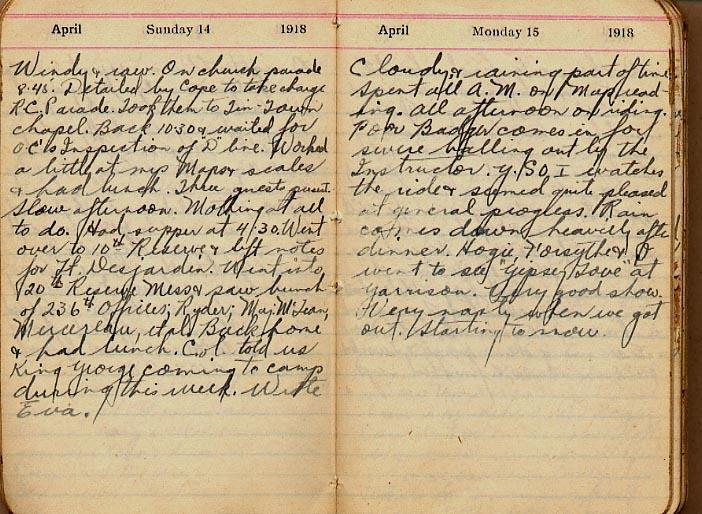 April Sunday 14 1918
Windy & raw. On church parade
8.45. Detailed by Cope to take charge
R.C. Parade. Took them to Tin-Town
chapel. Back 10:30 & waited for
O.C.'s Inspection of D line. Worked
a little at my Maps & scales
& had lunch. Three guests present.
Slow afternoon. Nothing at all
to do. Had supper at 4.30. Went
over to 10th Reserve & left notes
for Lt. Desjardin. Went into
20th Reserve Mess & saw bunch
of 236th Officers; Ryder; Maj. McLean,
et al. Back home
& had lunch. Col. told us
King George coming to camp
during this week. Wrote
Eva.
April Monday 15 1918
Cloudy & raining part of time
spent all A.M. on Map read-
ing. All afternoon on riding.
Poor Badger comes in for
severe balling out by the
Instructor. G.S.O. I watches
the ride & seemed quite pleased
at general progress. Rain
comes down heavily after
dinner. Hogie, Forsythe & I
went to see "Gipsy Love" at
Garrison. Very good show.
Very nasty when we got
out. Starting to snow.